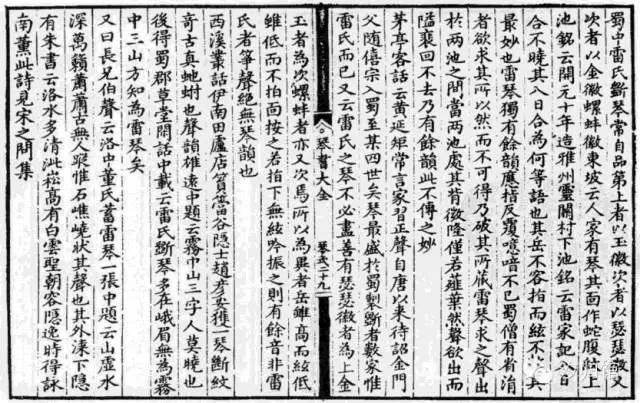 蜀中雷氏斲琴常自品第上者以玉徽次者以瑟瑟徽又
次者以金徽螺蚌徽東坡云人家有琴其面作蛇腹紋上
池銘云開元十年造雅州靈關村下池銘云雷家記八日
合不曉其八日合為何等語也其岳不容指而絃不其
最妙也雷琴獨有餘韻應指反覆噫喑不已蜀僧有者清
者欲求其所以然而不可得乃破其所藏雷琴求之聲出
於兩池之間當兩池處其背微隆僅若薤葉然聲欲出而
隘裴回不去乃有餘韻此不傳之妙
茅亭客話云黃延矩常言家習正聲自唐以來待詔金門
父隨僖宗入蜀至某四世矣琴最盛於蜀製斲者數家惟
雷氏而已又云雷氏之琴不必盡善有瑟瑟徽者為上金
琴書大全 二十九
玉者為次螺蚌者亦又次焉所以為異者岳雖高而絃低
雖低而不拍面按之若指下無絃吟振之則有餘音非雷
氏者箏聲絕無琴韻也
西溪叢話伊南田廬店篔簹谷隱士趙彥安獲一琴斷紋
奇古真虵蚹也聲韻雄遠中題云霧中山三字人莫曉也
後得蜀郡草堂閒話中載云雷氏斲琴多在峨眉無為霧
中三山方知為雷琴矣
又曰長兄伯聲云洛中董氏蓄雷琴一張中題云山虛水
深萬籟蕭蕭古無人蹤惟石嶕嶢狀其聲也其外漆下隱
有朱書云洛水多清泚崧高有白雲聖朝容隱逸時得詠
南薰此詩見宋之問集